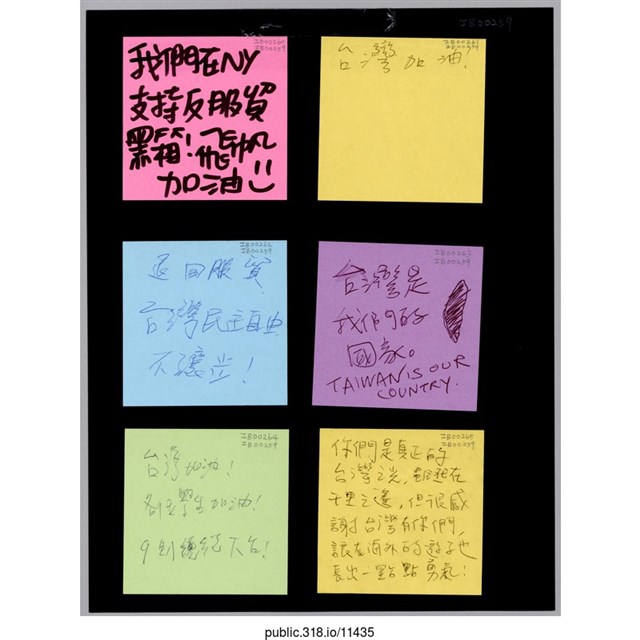 IB00259
IB00260
IB00259
我們在NY
支持反服貿
黑箱!飛帆
加油
IB00261
IB00259
台灣加油!
IB00262
IB00259
退回服貿
台灣民主自由
不讓步!
IB00263
IB00259
台灣是
我們的
國家。
TAIWAN IS OUR
COUNTRY.
IB00264
IB00259
台灣加油!
各位學生加油!
9趴總統下台!
IB00265
IB00259
你們是真正的
台灣之光,雖然在
千里之遙,但很感
謝台灣有你們,
讓在海外的遊子也
長出一點點勇氣!
public.318.io/11435